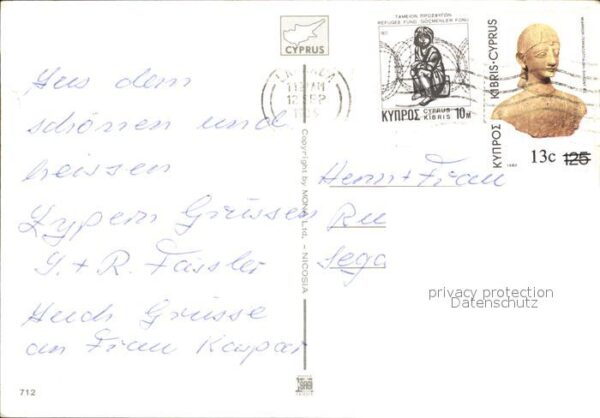 CYPRUS
ΤΑΜΕΙΟΝ ΠΡΟΣΦΥΓΩΝ
REFUGEE FUND GÖÇMENLER FONU
ΚΥΠΡΟΣ CYPRUS KIBRIS 10M
ΚΥΠΡΟΣ KIBRIS·CYPRUS
13c 125
Aus dem
schönen und
heissen
Zypern Grüssen
G. + R. Fässler
Auch Grüsse
an Frau Kaspar
Copyright by MONA Ltd. – NICOSIA
Herrn + Frau
privacy protection
Datenschutz
712